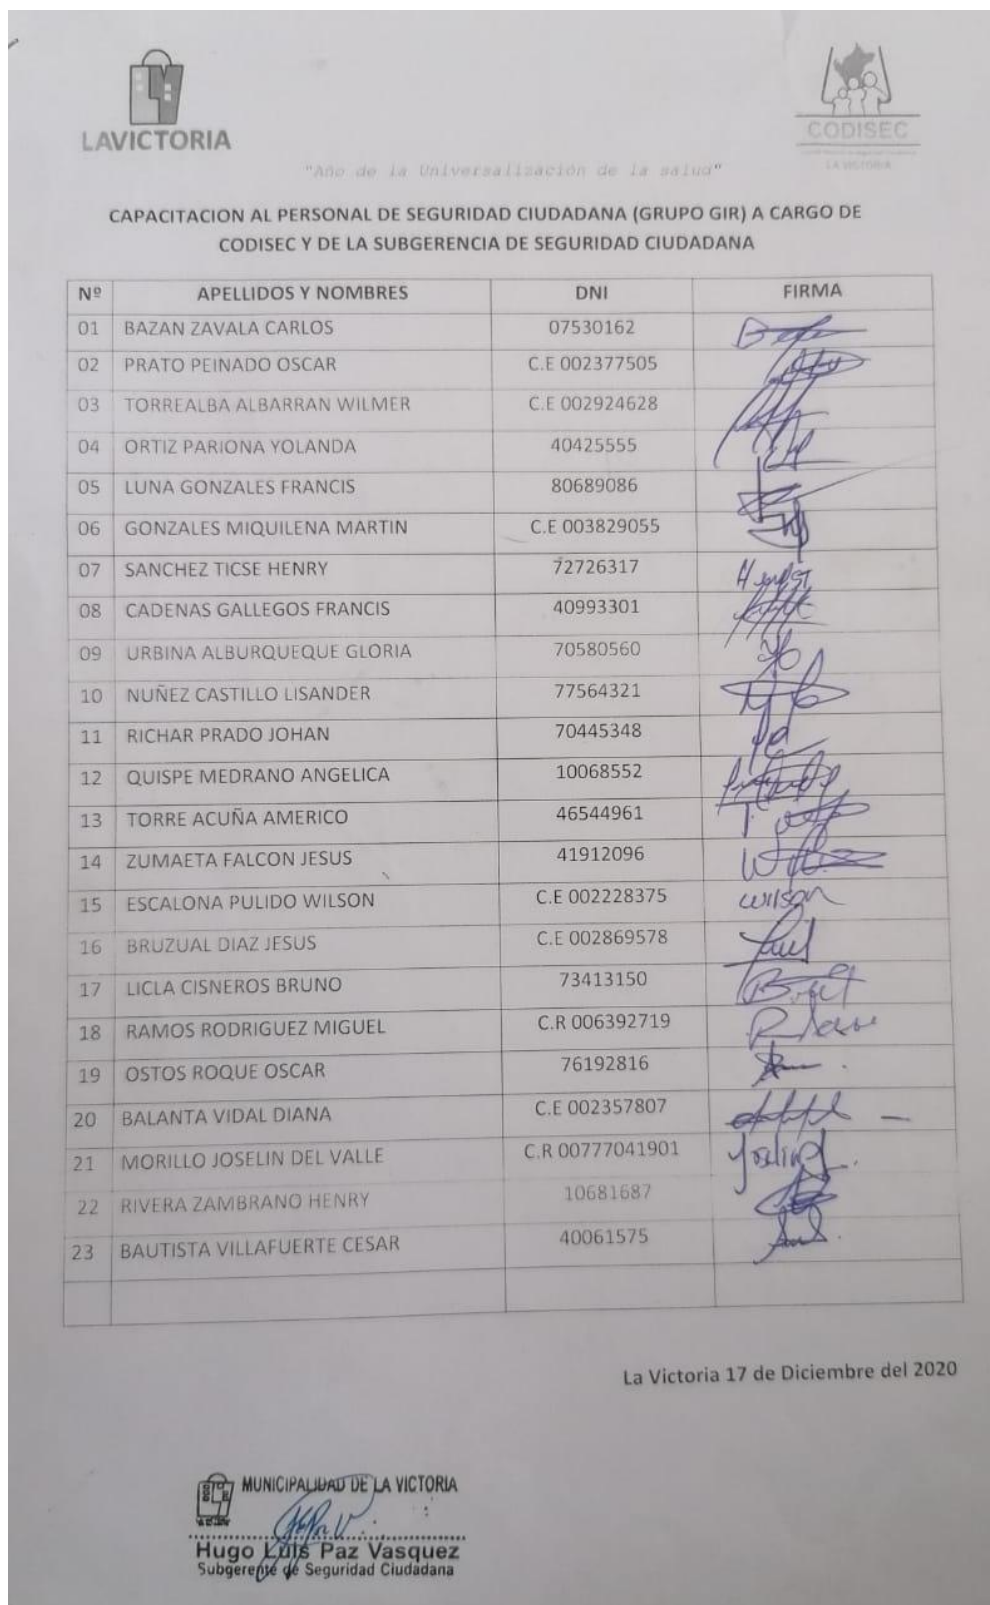 LAVICTORIA
CODISEC
LA VICTORIA
"Año de la Universalización de la salud"
CAPACITACION AL PERSONAL DE SEGURIDAD CIUDADANA (GRUPO GIR) A CARGO DE
CODISEC Y DE LA SUBGERENCIA DE SEGURIDAD CIUDADANA
Nº APELLIDOS Y NOMBRES DNI FIRMA
01 BAZAN ZAVALA CARLOS 07530162
02 PRATO PEINADO OSCAR C.E 002377505
03 TORREALBA ALBARRAN WILMER C.E 002924628
04 ORTIZ PARIONA YOLANDA 40425555
05 LUNA GONZALES FRANCIS 80689086
06 GONZALES MIQUILENA MARTIN C.E 003829055
07 SANCHEZ TICSE HENRY 72726317
08 CADENAS GALLEGOS FRANCIS 40993301
09 URBINA ALBURQUEQUE GLORIA 70580560
10 NUÑEZ CASTILLO LISANDER 77564321
11 RICHAR PRADO JOHAN 70445348
12 QUISPE MEDRANO ANGELICA 10068552
13 TORRE ACUÑA AMERICO 46544961
14 ZUMAETA FALCON JESUS 41912096
15 ESCALONA PULIDO WILSON C.E 002228375 wilson
16 BRUZUAL DIAZ JESUS C.E 002869578
17 LICLA CISNEROS BRUNO 73413150
18 RAMOS RODRIGUEZ MIGUEL C.R 006392719
19 OSTOS ROQUE OSCAR 76192816
20 BALANTA VIDAL DIANA C.E 002357807
21 MORILLO JOSELIN DEL VALLE C.R 00777041901
22 RIVERA ZAMBRANO HENRY 10681687
23 BAUTISTA VILLAFUERTE CESAR 40061575
La Victoria 17 de Diciembre del 2020
MUNICIPALIDAD DE LA VICTORIA
Hugo Luis Paz Vasquez
Subgerente de Seguridad Ciudadana